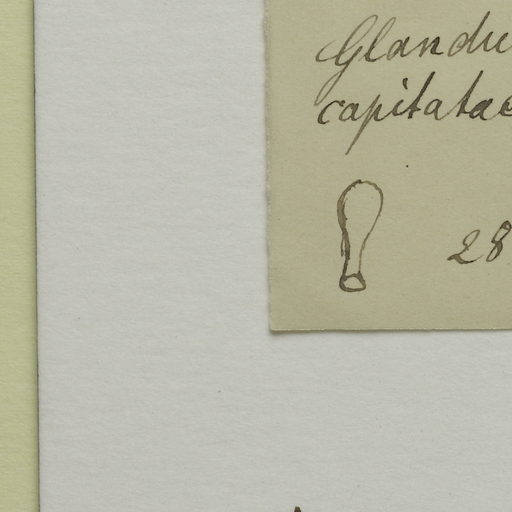 Glandu
capitatae
28